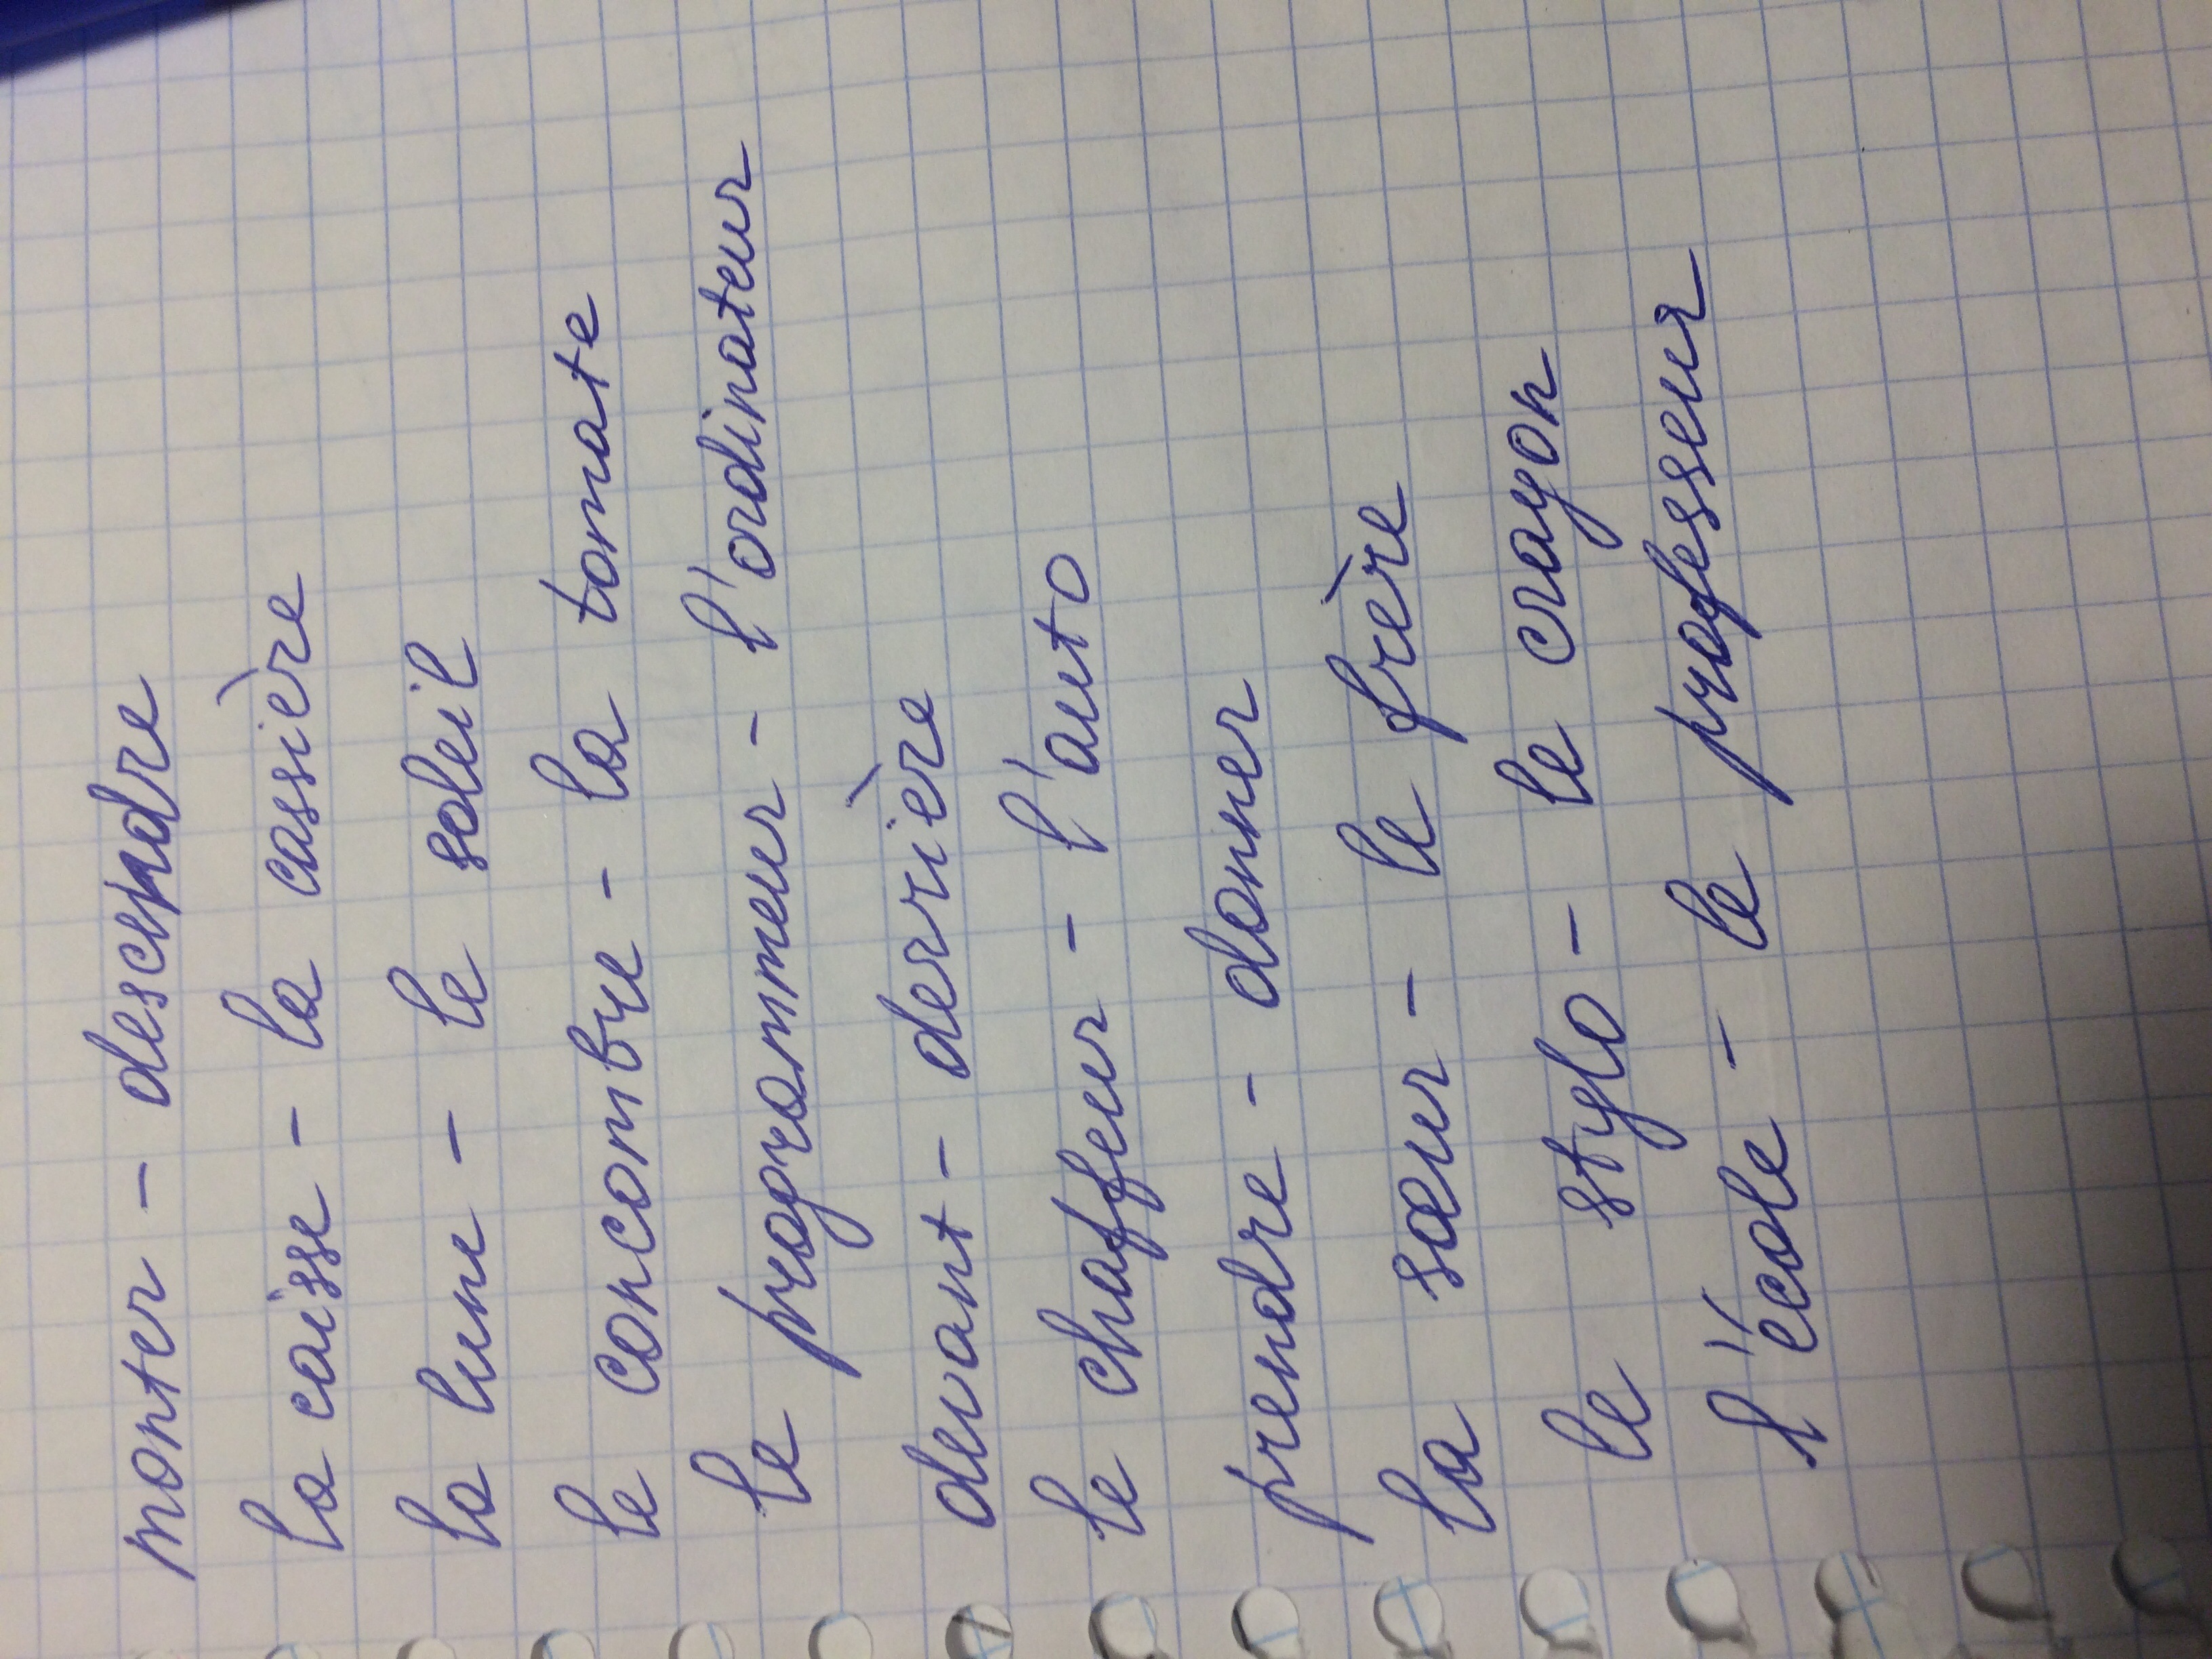 monter - descendre
la caisse - la cassière
la lune - le soleil
le concombre - la tomate
le programmeur - l'ordinateur
devant - derrière
le chaffeur - l'auto
prendre - donner
la sœur - le frère
le stylo - le crayon
l'école - le professeur